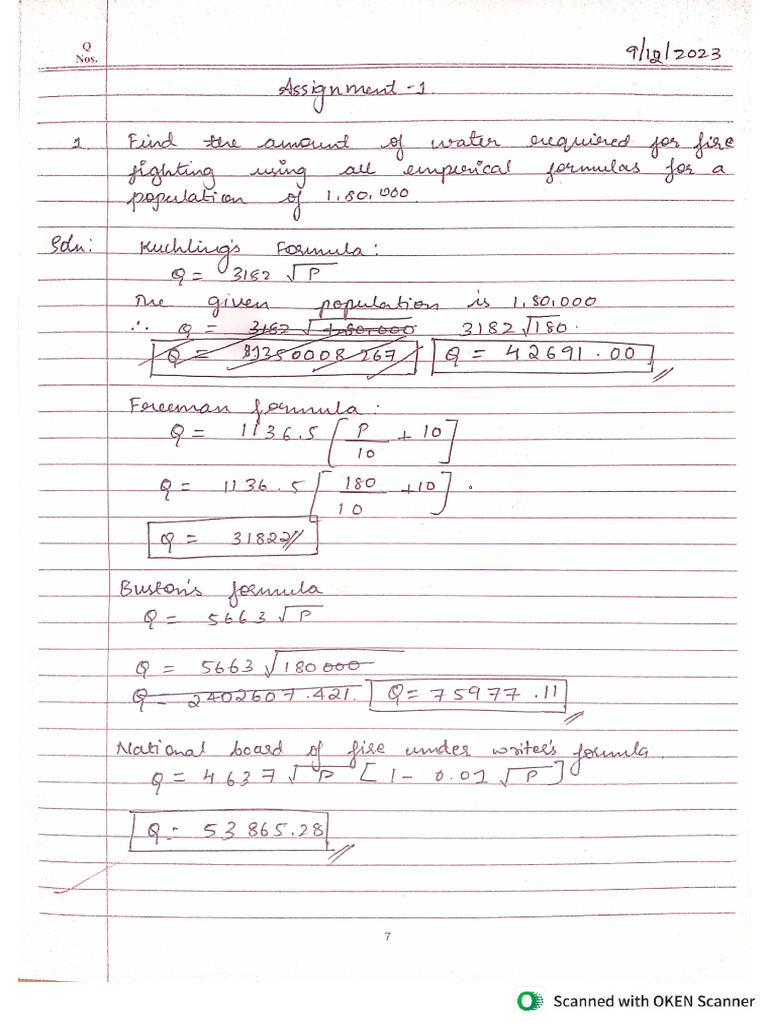 Q
Nos.
9/12/2023
Assignment -1.
1 Find the amount of water required for fire
fighting using all emperical formulas for a
population of 1,80,000
Soln: Kuchling's Formula:
Q = 3182 √P
The given population is 1,80,000
∴ Q = 3182 √1,80,000 3182 √180.
Q = 42691.00
Freeman formula:
Q = 1136.5 [P/10 + 10]
Q = 1136.5 [180/10 +10].
Q = 31822//
Buston's formula
Q = 5663 √P
Q = 5663 √180000
Q = 2402607.421. Q = 75977.11
National board of fire under writer's formula.
Q = 4637 √P [1 - 0.01 √P]
Q = 53865.28
7
Scanned with OKEN Scanner